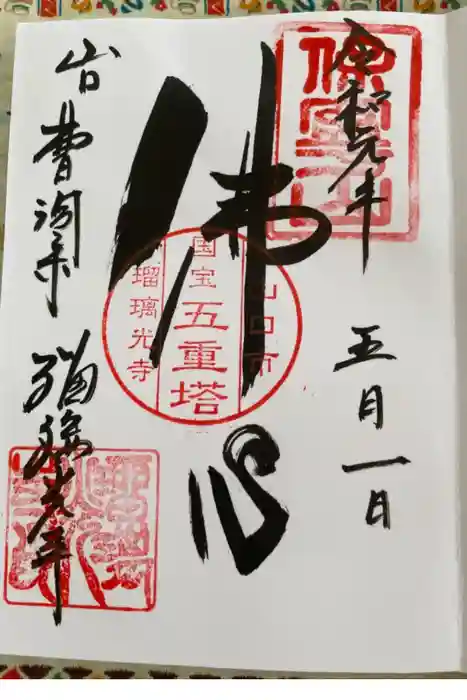 保寧山
令和元年
五月一日
佛心
山口市
国宝
五重塔
瑠璃光寺
山口
曹洞宗
瑠璃光寺